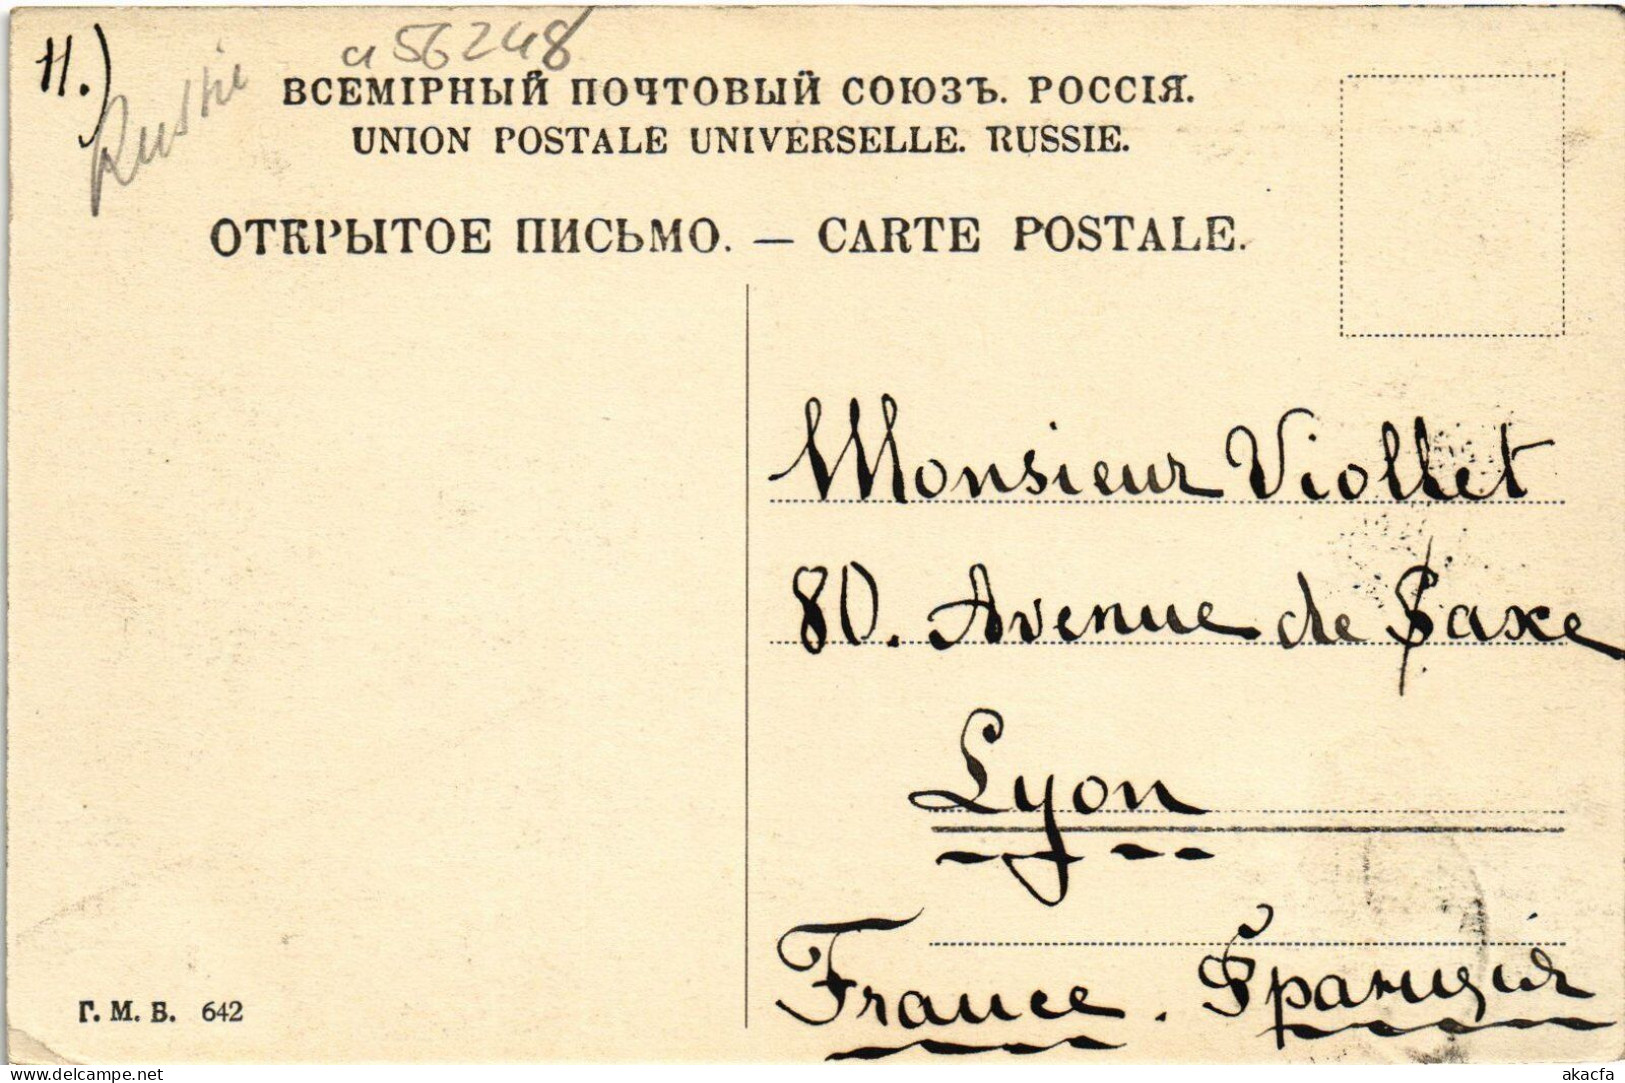 11.)
Russie
a56248
ВСЕМІРНЫЙ ПОЧТОВЫЙ СОЮЗЪ. РОССІЯ.
UNION POSTALE UNIVERSELLE. RUSSIE.
ОТКРЫТОЕ ПИСЬМО. — CARTE POSTALE.
Monsieur Viollet
80. Avenue de Saxe
Lyon
France. Франція
Г. М. Б. 642
www.delcampe.net
akacfa